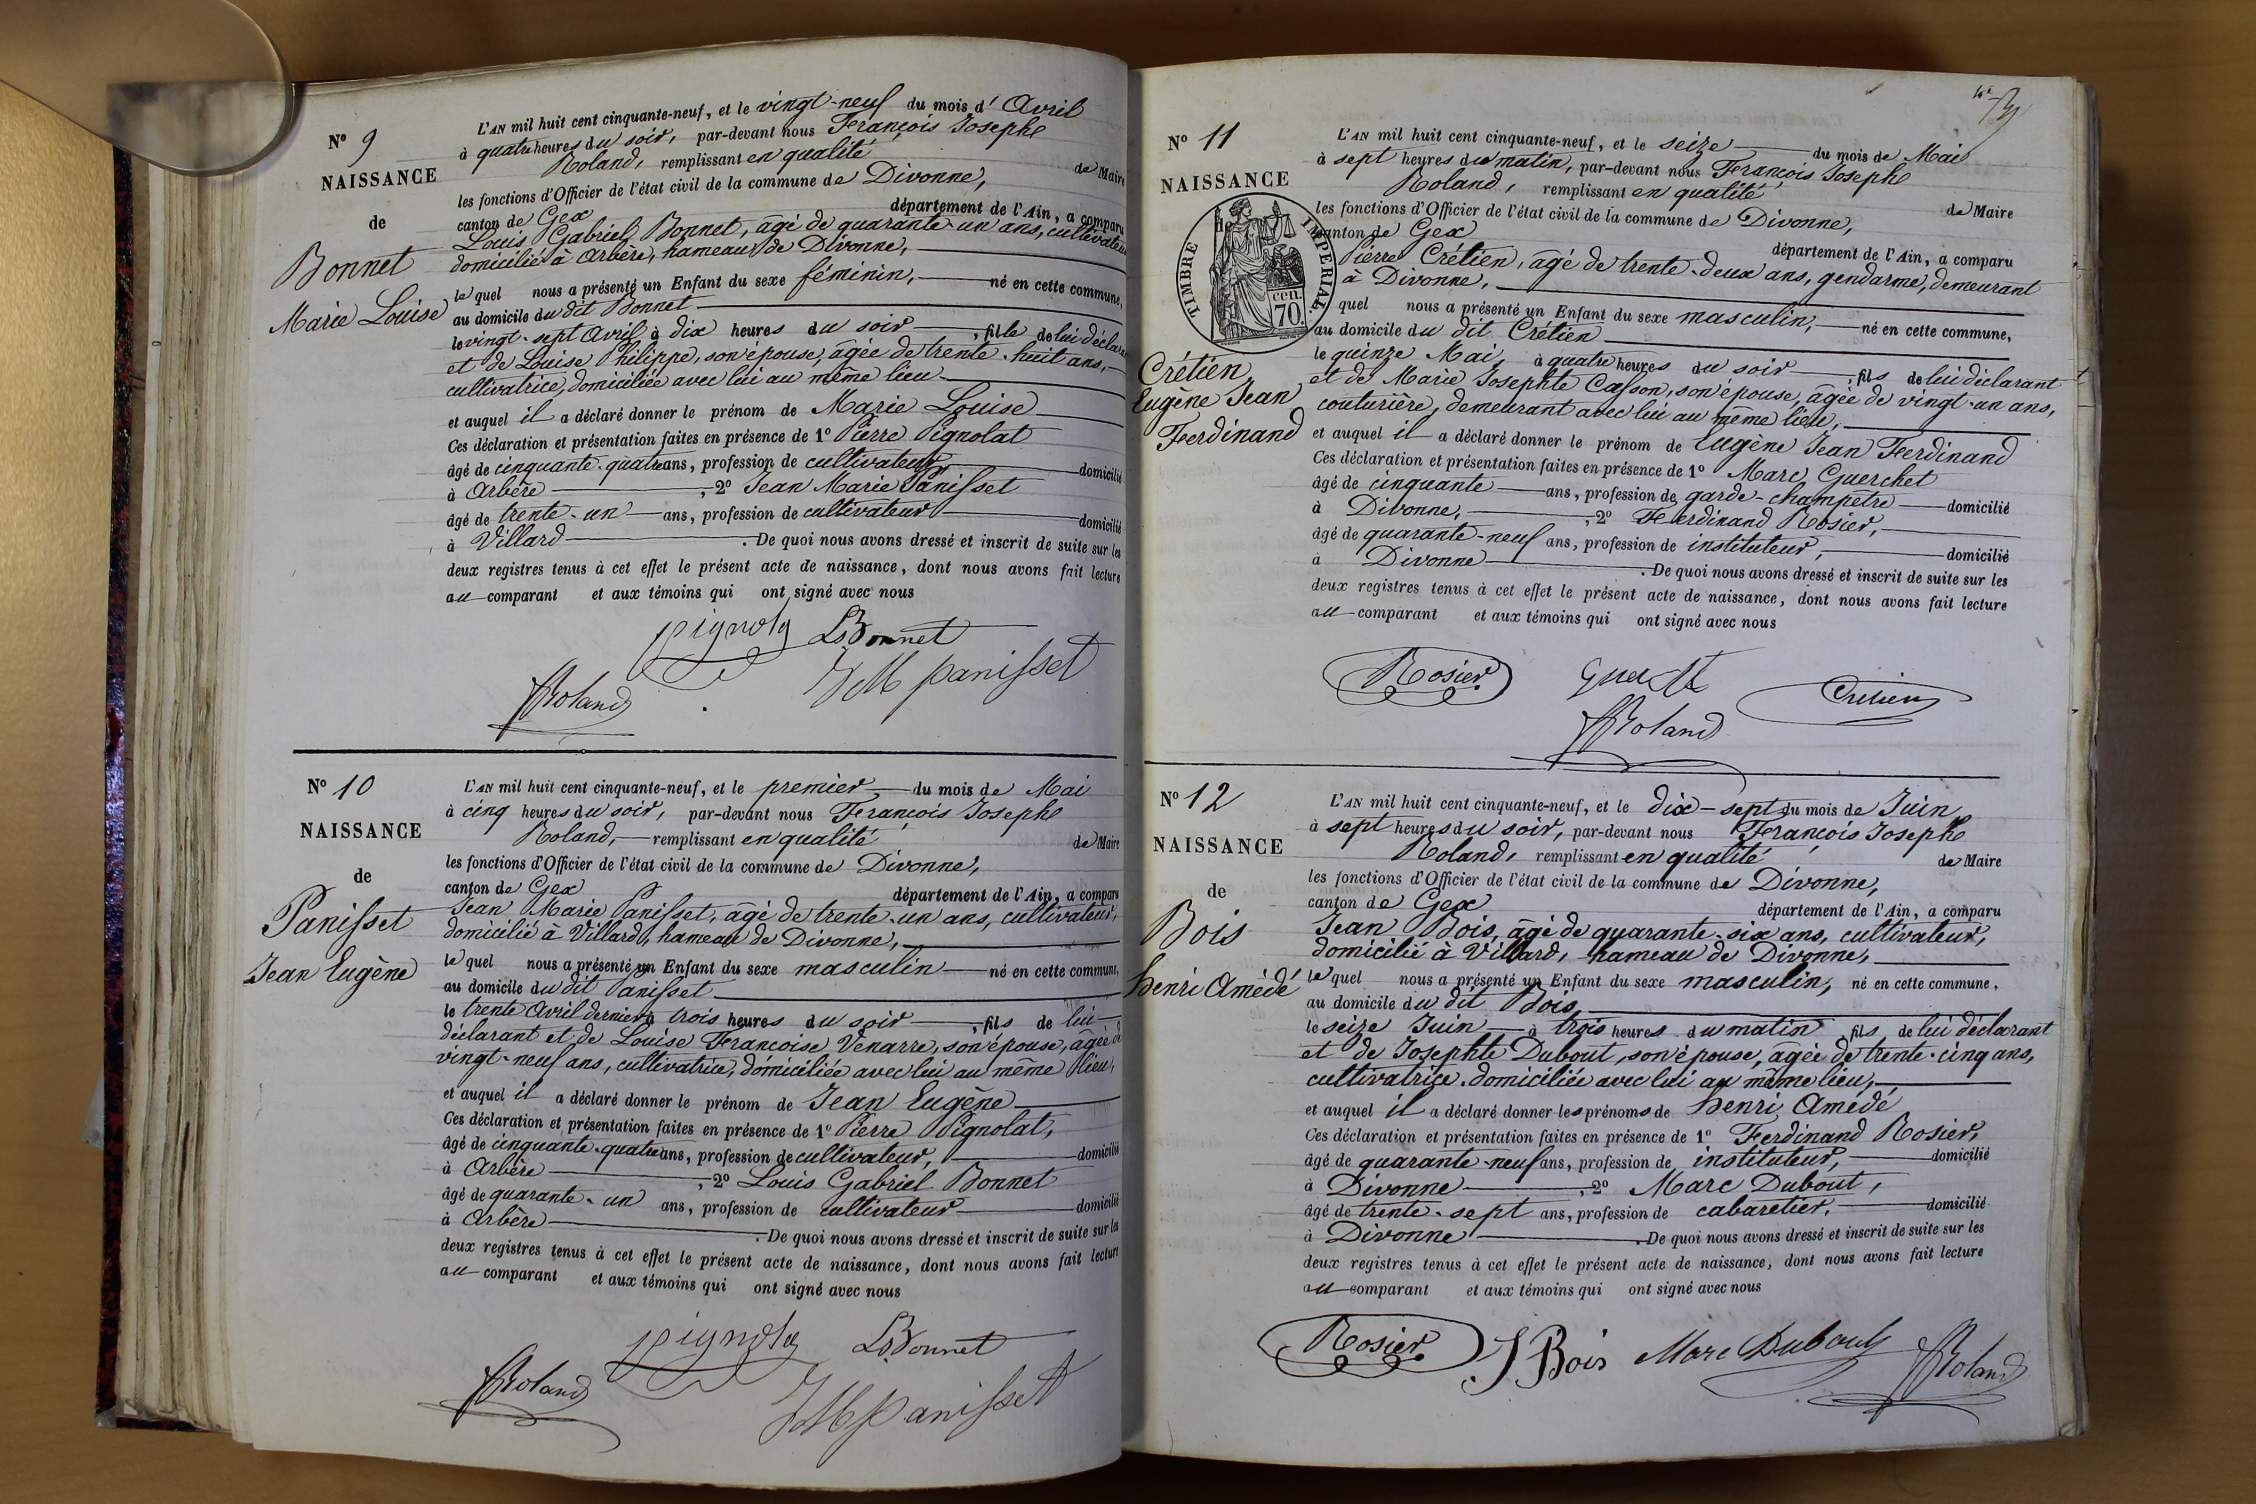 N° 9
NAISSANCE
de
Bonnet
Marie Louise
L'AN mil huit cent cinquante-neuf, et le vingt-neuf du mois d'Avril
à quatre heures du soir, par-devant nous François Josephe
Roland, remplissant en qualité de Maire
les fonctions d'Officier de l'état civil de la commune de Divonne,
canton de Gex département de l'Ain, a comparu
Louis Gabriel Bonnet, âgé de quarante-un ans, cultivateur
domicilié à Arbère, hameau de Divonne,
lequel nous a présenté un Enfant du sexe féminin, né en cette commune,
au domicile du dit Bonnet
le vingt-sept Avril à dix heures du soir, fille de lui déclarant
et de Louise Philippe, son épouse, âgée de trente-huit ans,
cultivatrice, domiciliée avec lui au même lieu
et auquel il a déclaré donner le prénom de Marie Louise
Ces déclaration et présentation faites en présence de 1° Pierre Pignolat
âgé de cinquante-quatre ans, profession de cultivateur domicilié
à Arbère, 2° Jean Marie Panisset
âgé de trente-un ans, profession de cultivateur domicilié
à Villard. De quoi nous avons dressé et inscrit de suite sur les
deux registres tenus à cet effet le présent acte de naissance, dont nous avons fait lecture
au comparant et aux témoins qui ont signé avec nous
Pignolg LBonnet
JM panisset
FRoland
N° 10
NAISSANCE
de
Panisset
Jean Eugène
L'AN mil huit cent cinquante-neuf, et le premier du mois de Mai
à cinq heures du soir, par-devant nous François Josephe
Roland, remplissant en qualité de Maire
les fonctions d'Officier de l'état civil de la commune de Divonne,
canton de Gex département de l'Ain, a comparu
Jean Marie Panisset, âgé de trente-un ans, cultivateur,
domicilié à Villard, hameau de Divonne,
lequel nous a présenté un Enfant du sexe masculin né en cette commune,
au domicile du dit Panisset
le trente Avril dernier à trois heures du soir, fils de lui
déclarant et de Louise Francoise Venarre, son épouse, âgée de
vingt-neuf ans, cultivatrice, domiciliée avec lui au même lieu,
et auquel il a déclaré donner le prénom de Jean Eugène
Ces déclaration et présentation faites en présence de 1° Pierre Pignolat,
âgé de cinquante-quatre ans, profession de cultivateur, domicilié
à Arbère, 2° Louis Gabriel Bonnet
âgé de quarante-un ans, profession de cultivateur domicilié
à Arbère. De quoi nous avons dressé et inscrit de suite sur les
deux registres tenus à cet effet le présent acte de naissance, dont nous avons fait lecture
au comparant et aux témoins qui ont signé avec nous
pignolg LBonnet
FRoland JM panisset
N° 11
NAISSANCE
TIMBRE IMPERIAL
cen.
70
Crétien
Eugène Jean
Ferdinand
L'AN mil huit cent cinquante-neuf, et le seize du mois de Mai
à sept heures du matin, par-devant nous François Josephe
Roland, remplissant en qualité de Maire
les fonctions d'Officier de l'état civil de la commune de Divonne,
canton de Gex département de l'Ain, a comparu
Pierre Crétien, âgé de trente-deux ans, gendarme, demeurant
à Divonne,
quel nous a présenté un Enfant du sexe masculin, né en cette commune,
au domicile du dit Crétien
le quinze Mai, à quatre heures du soir, fils de lui déclarant
et de Marie Josephte Casson, son épouse, âgée de vingt-un ans,
couturière, demeurant avec lui au même lieu,
et auquel il a déclaré donner le prénom de Eugène Jean Ferdinand
Ces déclaration et présentation faites en présence de 1° Marc Guerchet
âgé de cinquante ans, profession de garde-champetre domicilié
à Divonne, 2° Ferdinand Rosier,
âgé de quarante-neuf ans, profession de instituteur, domicilié
à Divonne. De quoi nous avons dressé et inscrit de suite sur les
deux registres tenus à cet effet le présent acte de naissance, dont nous avons fait lecture
au comparant et aux témoins qui ont signé avec nous
Rosier Crétien
FRoland
N° 12
NAISSANCE
de
Bois
henri Amédé
L'AN mil huit cent cinquante-neuf, et le dix-sept du mois de Juin
à sept heures du soir, par-devant nous François Josephe
Roland, remplissant en qualité de Maire
les fonctions d'Officier de l'état civil de la commune de Divonne,
canton de Gex département de l'Ain, a comparu
Jean Bois, âgé de quarante-six ans, cultivateur,
domicilié à Villard, hameau de Divonne,
lequel nous a présenté un Enfant du sexe masculin, né en cette commune,
au domicile du dit Bois
le seize Juin à trois heures du matin fils de lui déclarant
et de Josephte Dubout, son épouse, âgée de trente-cinq ans,
cultivatrice, domiciliée avec lui au même lieu,
et auquel il a déclaré donner les prénoms de henri Amédé
Ces déclaration et présentation faites en présence de 1° Ferdinand Rosier,
âgé de quarante-neuf ans, profession de instituteur, domicilié
à Divonne, 2° Marc Dubout,
âgé de trente-sept ans, profession de cabaretier, domicilié
à Divonne. De quoi nous avons dressé et inscrit de suite sur les
deux registres tenus à cet effet le présent acte de naissance, dont nous avons fait lecture
au comparant et aux témoins qui ont signé avec nous
Rosier J Bois Marc Dubout FRoland